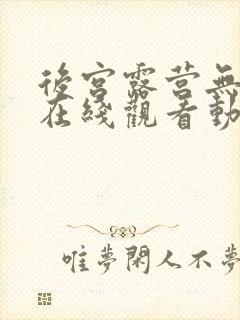 後宮露营無
在綫觀看動
唯夢閑人不夢